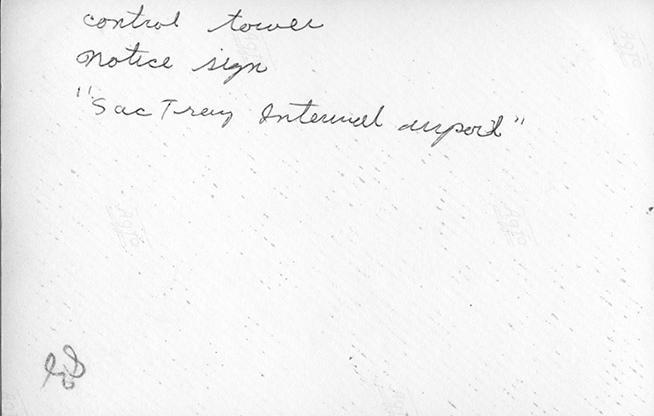 control tower
notice sign
"Sac Tray Internal airport"